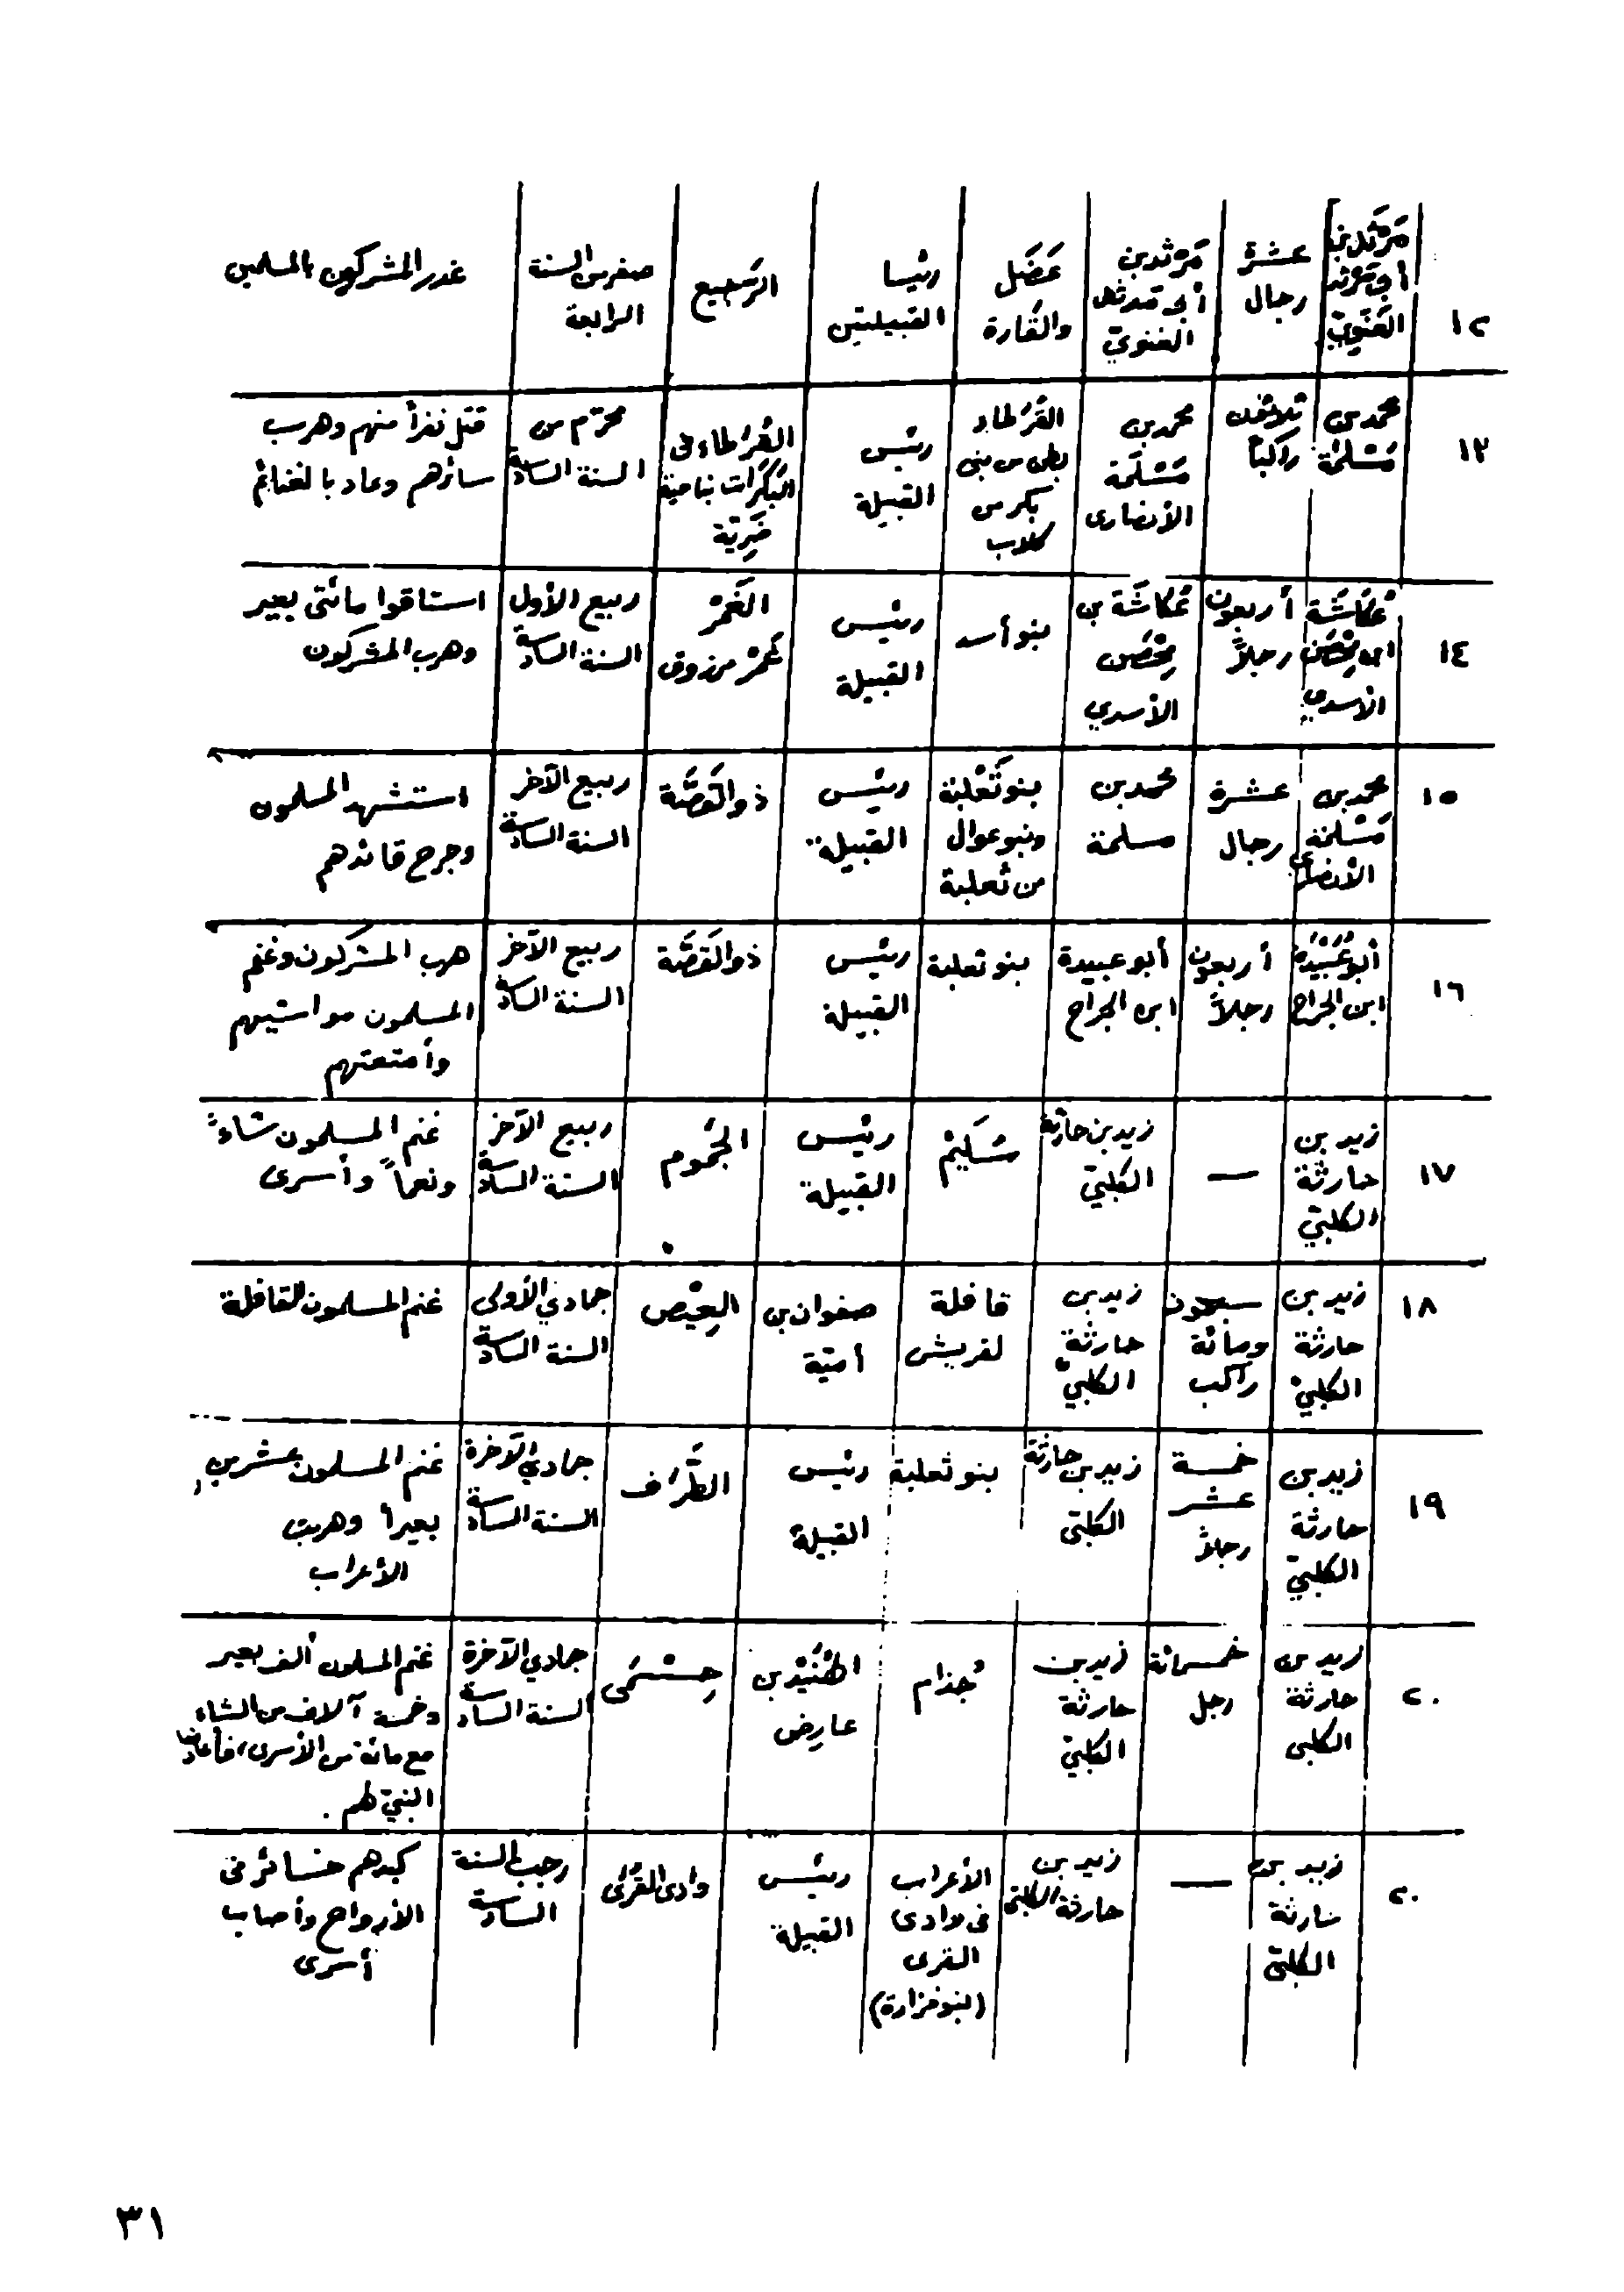 ١٢
مَرْثَد بن
أبي مَرْثَد
الغَنَوِيّ
عشرة
رجال
مَرْثد بن
أبي مرثد
الغنويّ
عَضَل
والقَارة
رئيسا
القبيلتين
الرَّجيع
صفر من السنة
الرابعة
غدر المشركون بالمسلمين
١٣
محمد بن
مَسْلَمَة
ثلاثون
راكباً
محمد بن
مَسْلَمة
الأنصارى
القُرَطاء
بطن من بنى
بكر من
كلاب
رئيس
القبيلة
القُرَطاء فى
البَكَرات بناحية
ضَرِيّة
محرّم من
السنة السادسة
قتل نفراً منهم وهرب
سائرهم وعاد بالغنائم
١٤
عُكاشَة
ابن مِحْصَن
الأسدي
أربعون
رجلاً
عُكاشَة بن
مِحْصَن
الأسدي
بنو أسد
رئيس
القبيلة
الغَمْر
غَمْر مرزوق
ربيع الأول
السنة السادسة
استاقوا مائتى بعير
وهرب المشركون
١٥
محمد بن
مَسْلمة
الأنصارى
عشرة
رجال
محمد بن
مسلمة
بنو ثَعْلبة
وبنو عوال
من ثعلبة
رئيس
القبيلة
ذو القَصَّة
ربيع الآخر
السنة السادسة
استشهد المسلمون
وجرح قائدهم
١٦
أبو عُبَيْدة
ابن الجراح
أربعون
رجلاً
أبو عبيدة
ابن الجراح
بنو ثعلبة
رئيس
القبيلة
ذو القَصَّة
ربيع الآخر
السنة السادسة
هرب المشركون وغنم
المسلمون مواشيهم
وأمتعتهم
١٧
زيد بن
حارثة
الكلبيّ
—
زيد بن حارثة
الكلبيّ
سُلَيْم
رئيس
القبيلة
الجَمُوم
ربيع الآخر
السنة السادسة
غنم المسلمون شاءً
ونعماً وأسرى
١٨
زيد بن
حارثة
الكلبيّ
سبعون
ومائة
راكب
زيد بن
حارثة
الكلبيّ
قافلة
لقريش
صفوان بن
أميّة
العِيْص
جمادي الأولى
السنة السادسة
غنم المسلمون القافلة
١٩
زيد بن
حارثة
الكلبيّ
خمسة
عشر
رجلاً
زيد بن حارثة
الكلبى
بنو ثعلبة
رئيس
القبيلة
الطَّرَف
جمادي الآخرة
السنة السادسة
غنم المسلمون عشرين
بعيراً وهربت
الأعراب
٢٠
زيد بن
حارثة
الكلبى
خمسمائة
رجل
زيد بن
حارثة
الكلبيّ
جُذام
الهُنَيْد بن
عارِض
حِسْمَى
جمادي الآخرة
السنة السادسة
غنم المسلمون ألف بعير
وخمسة آلاف من الشاء
مع مائة من الأسرى، فأعادها
النبيّ لهم.
٢٠
زيد بن
حارثة
الكلبيّ
—
زيد بن
حارثة الكلبيّ
الأعراب
فى وادى
القرى
(بنو فزارة)
رئيس
القبيلة
وادى القُرَى
رجب السنة
السادسة
كبدهم خسائر فى
الأرواح وأصاب
أسرى
٣١